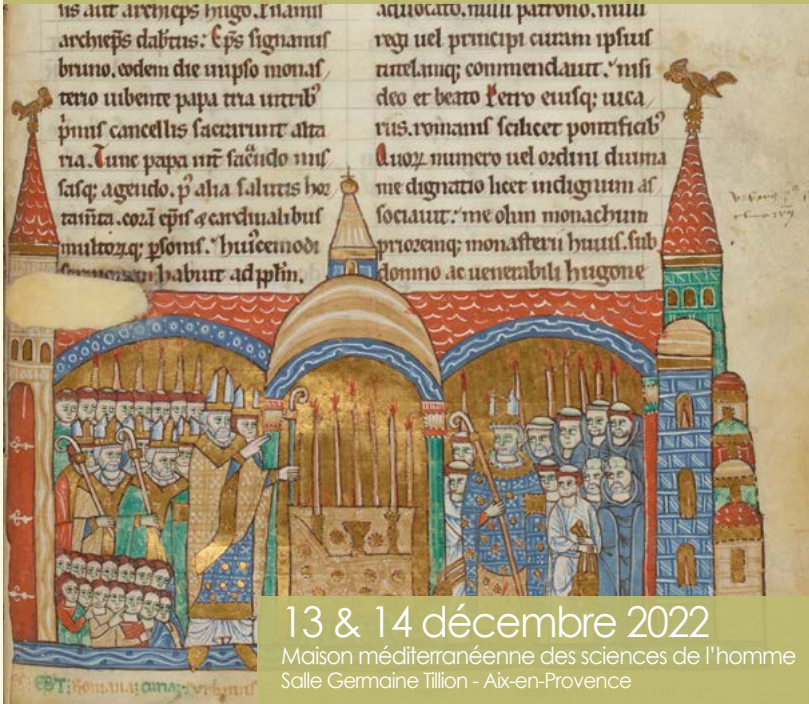 archiep̄s hugo.
archiep̄s dabtus: Ep̄s signanus
bruno. eodem die in ipso monas
terio iubente papa tria in trib'
p̄mis cancellis sacrarunt alta
ria. Tunc papa int̄ sac̄ndo mis
sasq; agendo. p̄ alia salutis hor
tam̄ta. corā ep̄is & cardinalibus
multorꝝq; p̄sonis. huiscemodi
sermonem habuit ad pp̄lm.
aduocato. nulli patrono. nulli
regi uel principi curam ipsius
tutelamq; commendauit. nisi
deo et beato Petro eiusq; uica
riis. romanis scilicet pontificib'
Quoꝝ numero uel ordini diuina
me dignatio licet indignum as
sociauit: me olim monachum
prioremq; monasterii huius. sub
domno ac uenerabili hugone
EST: Romana: curia:
13 & 14 décembre 2022
Maison méditerranéenne des sciences de l'homme
Salle Germaine Tillion - Aix-en-Provence